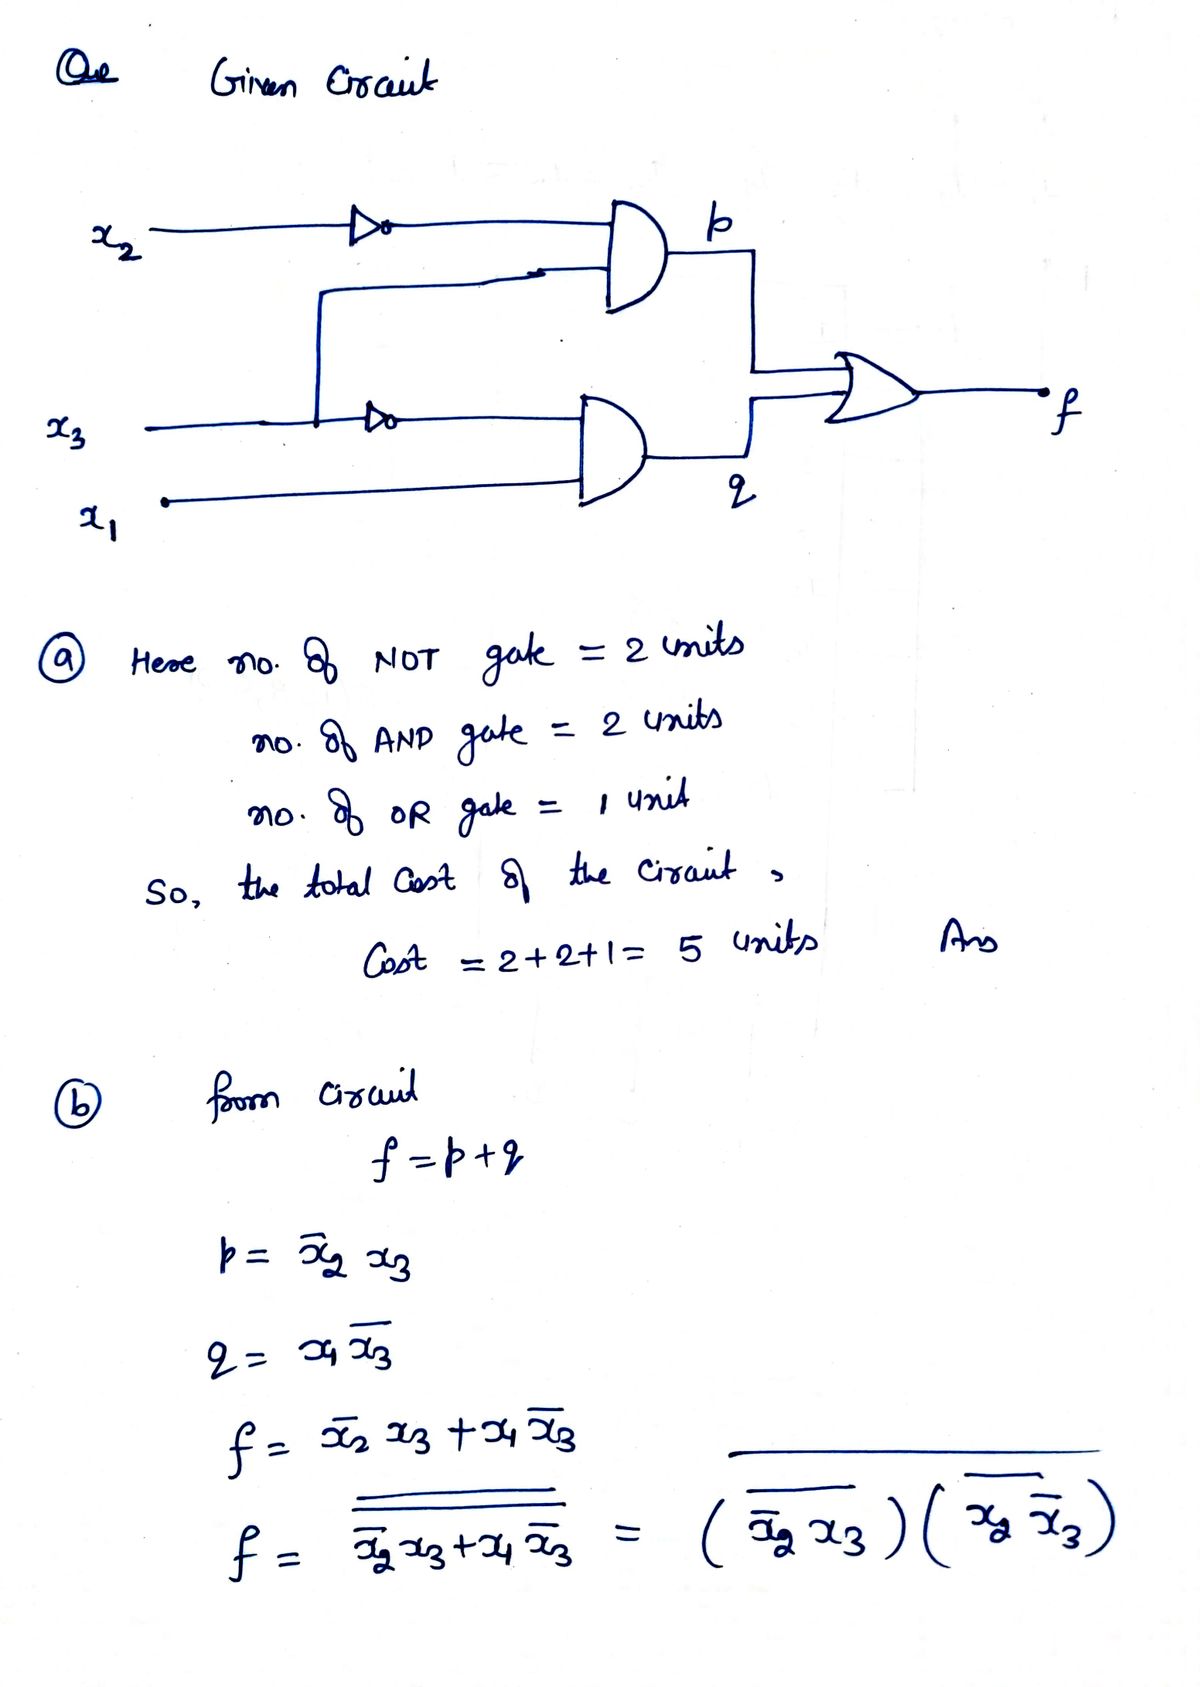 Que Given Circuit
x₂
p
x₃
f
x₁
q
(a) Here no. of NOT gate = 2 units
no. of AND gate = 2 units
no. of OR gate = 1 unit
So, the total Cost of the circuit,
Cost = 2+2+1 = 5 units Ans
(b) from circuit
f = p + q
p = x̄₂ x₃
q = x₁ x̄₃
f = x̄₂ x₃ + x₁ x̄₃
f = \overline{\overline{x̄₂ x₃ + x₁ x̄₃}} = \overline{(\overline{x̄₂ x₃})(\overline{x₂ x̄₃})}